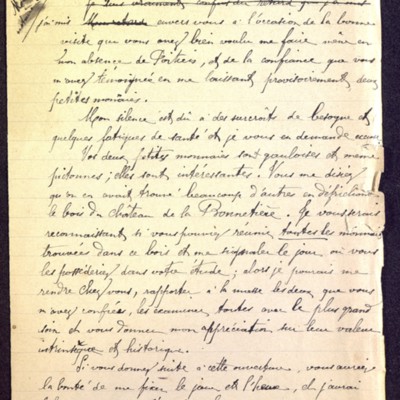 Je suis vraiment confus du retard que j'ai mis
j'ai mis Mon retard envers vous à l'occasion de la bonne
visite que vous avez bien voulu me faire même en
mon absence de Poitiers, et de la confiance que vous
m'avez témoignée en me laissant provisoirement deux
petites monnaies.
Mon silence est dû à des surcroîts de besogne et
quelques fatigues de santé et je vous en demande excuse.
Vos deux petites monnaies sont gauloises et même
pictonnes ; elles sont intéressantes. Vous me disiez
qu'on en avait trouvé beaucoup d'autres en
le bois du château de la Bonnetière. Je vous serais
reconnaissant si vous pouviez réunir toutes les monnaies
trouvées dans ce bois et me signaler le jour où vous
les posséderiez dans votre étude ; alors je pourrais me
rendre chez vous, rapporter à la masse les deux que vous
m'avez confiées, les examiner toutes avec le plus grand
soin et vous donner mon appréciation sur leur valeur
intrinsèque et historique.
Si vous donnez suite à cette ouverture, vous auriez
la bonté de me fixer le jour et l'heure, et j'aurai